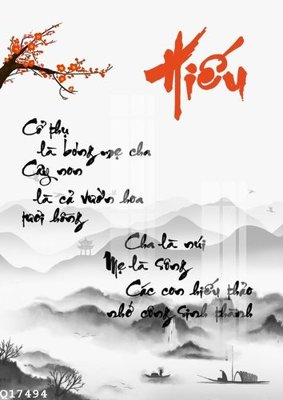 Hiếu
Cổ thụ
là bóng mẹ cha
Cây non
là cả vườn hoa
tươi hồng
Cha là núi
Mẹ là sông
Các con hiếu thảo
nhớ công sinh thành
Q17494